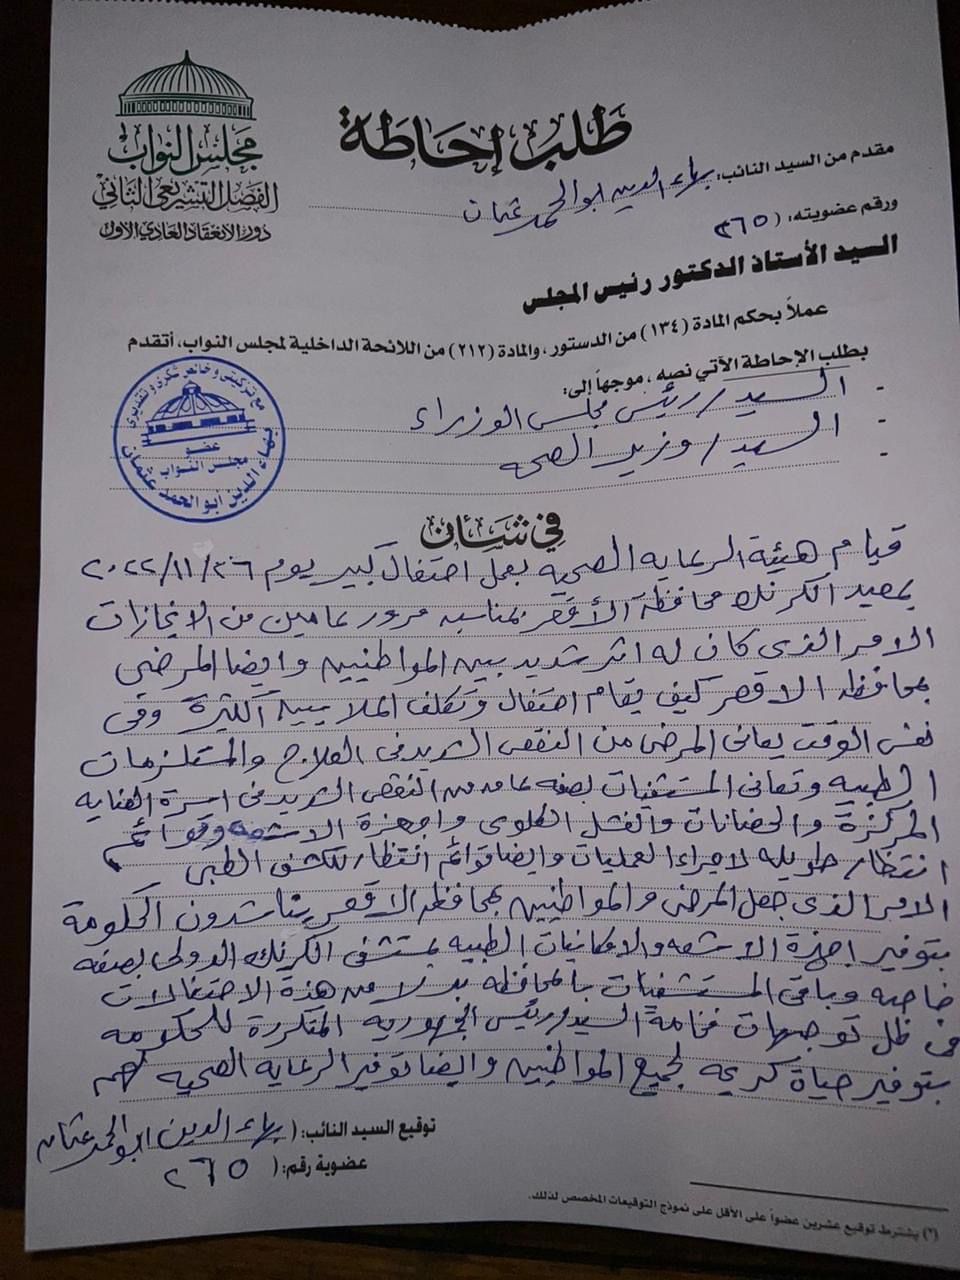 مجلس النواب
الفصل التشريعى الثانى
دور الانعقاد العادى الأول
طلب إحاطة
مقدم من السيد النائب: بهاء الدين ابو الحمد عثمان
ورقم عضويته: ( ٣٦٥
السيد الأستاذ الدكتور رئيس المجلس
عملاً بحكم المادة (١٣٤) من الدستور، والمادة (٢١٢) من اللائحة الداخلية لمجلس النواب، أتقدم
بطلب الإحاطة الآتي نصه، موجهاً إلى:
- السيد/ رئيس مجلس الوزراء
- السيد/ وزير الصحه
-
مع تزكيتى وخالص شكرى وتقديرى
عضو
مجلس النواب
بهاء الدين ابو الحمد عثمان
في شأن
قيام هيئة الرعايه الصحيه بعمل احتفال كبير يوم ٢٠٢٢/١١/٢٦
بمعبد الكرنك محافظة الأقصر بمناسبه مرور عامين من الانجازات
الامر الذى كان له اثر شديد بين المواطنيين وايضا المرضى
بمحافظه الاقصر كيف يقام احتفال وتكلف الملايين الكثيرة وفى
نفس الوقت يعانى المرضى من النقص الشديد فى العلاج والمستلزمات
الطبيه وتعانى المستشفيات بصفه عامه من النقص الشديد فى اسرة العنايه
المركزة والحضانات والفشل الكلوى واجهزة الاشعه وقوائم
انتظار طويله لاجراء العمليات وايضا قوائم انتظار للكشف الطبى
الامر الذى جعل المرضى والمواطنين بمحافظه الاقصر يناشدون الحكومة
بتوفير اجهزة الاشعه والامكانيات الطبيه بمستشفى الكرنك الدولى بصفه
خاصه وباقى المستشفيات بالمحافظه بدلا من هذة الاحتفالات
فى ظل توجهات فخامة السيد/ رئيس الجمهوريه المتكررة للحكومه
بتوفير حياة كريمه لجميع المواطنين وايضا توفير الرعايه الصحيه لهم
توقيع السيد النائب: ( بهاء الدين ابو الحمد عثمان
عضوية رقم: ( ٣٦٥
(*) يشترط توقيع عشرين عضواً على الأقل على نموذج التوقيعات المخصص لذلك.